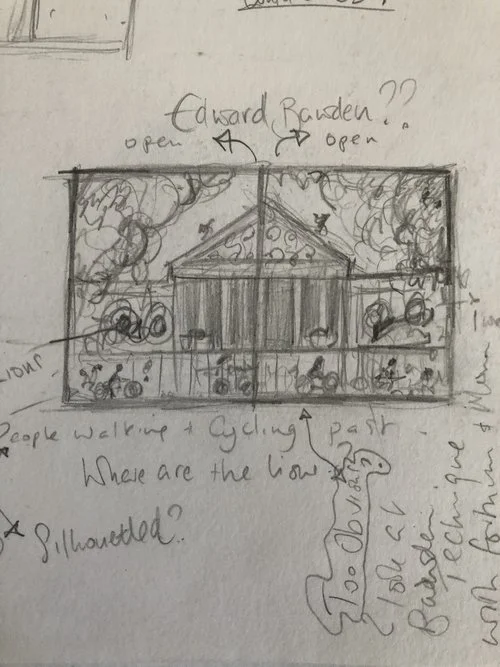 Edward Bawden??
open
open
People walking + Cycling past.
Where are the lions
Silhouetted?
Too Obvious?
look at
Bawden
technique
with fortnum + Mason